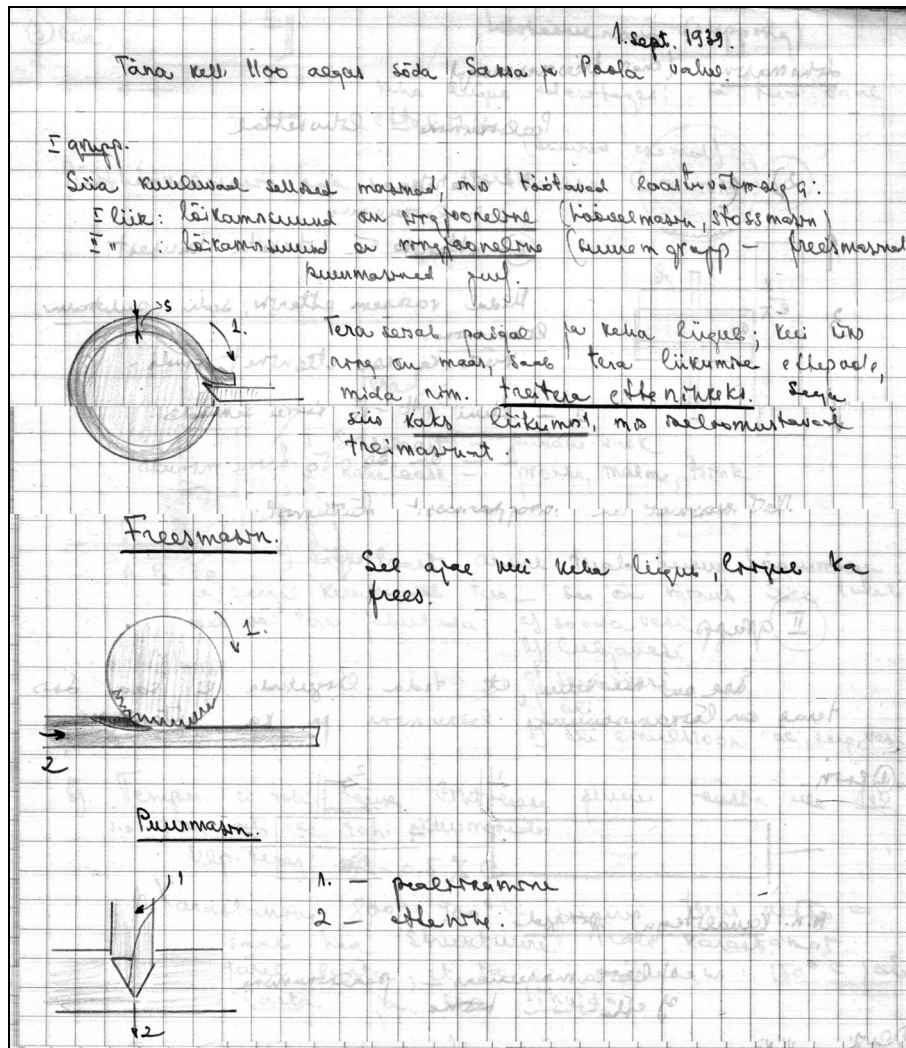 1. sept. 1939.
Täna kell 1100 algas sõda Saksa ja Poola vahel.
I grupp.
Siia kuuluvad sellised masinad, mis töötavad laastuvõtmisega:
I liik: lõikamissuund on sirgjooneline (höövelmasin, stossmasin)
II " : lõikamissuund on ringjooneline (suurem grupp – freesmasinad
puurmasinad
S
1.
Tera seisab paigal ja keha liigub; kui üks
ring on maas, saab tera liikumise ettepoole,
mida nim. treitera ettenihkeks. Seega
siis kaks liikumist, mis iseloomustavad
treimasinat.
Freesmasin.
Sel ajal kui keha liigub, liigub ka
frees.
1.
2
Puurmasin.
1
1. – pealiikumine
2 – ettenihe.
2